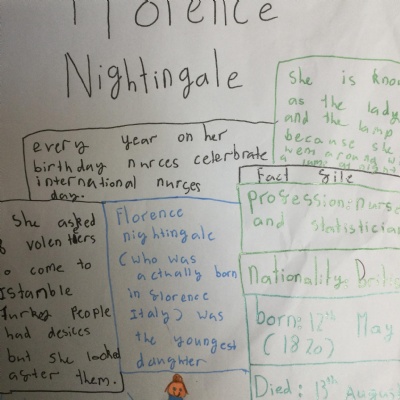 Florence
Nightingale
She is know
as the lady
and the lamp
because she
went around w
a lamp at night
every year on her
birthday nurces celerbrate
international nurses
day.
She asked
volenteers
to come to
Istamble
Turkey People
had desices
but she looked
after them.
Florence
nightingale
(who was
actually born
in florence
Italy) was
the youngest
daughter
Fact file
profession: nurse
and statistician
Nationality: British
born: 12th May
(1820)
Died: 13th August